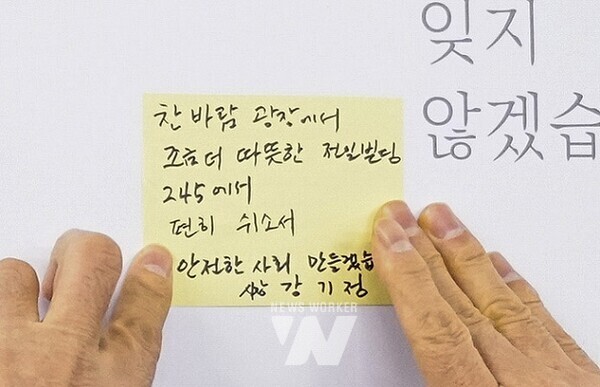 잊지
않겠습
찬 바람 광장에서
조금 더 따뜻한 전일빌딩
245에서
편히 쉬소서
안전한 사회 만들겠습
강기정
NEWS WORKER